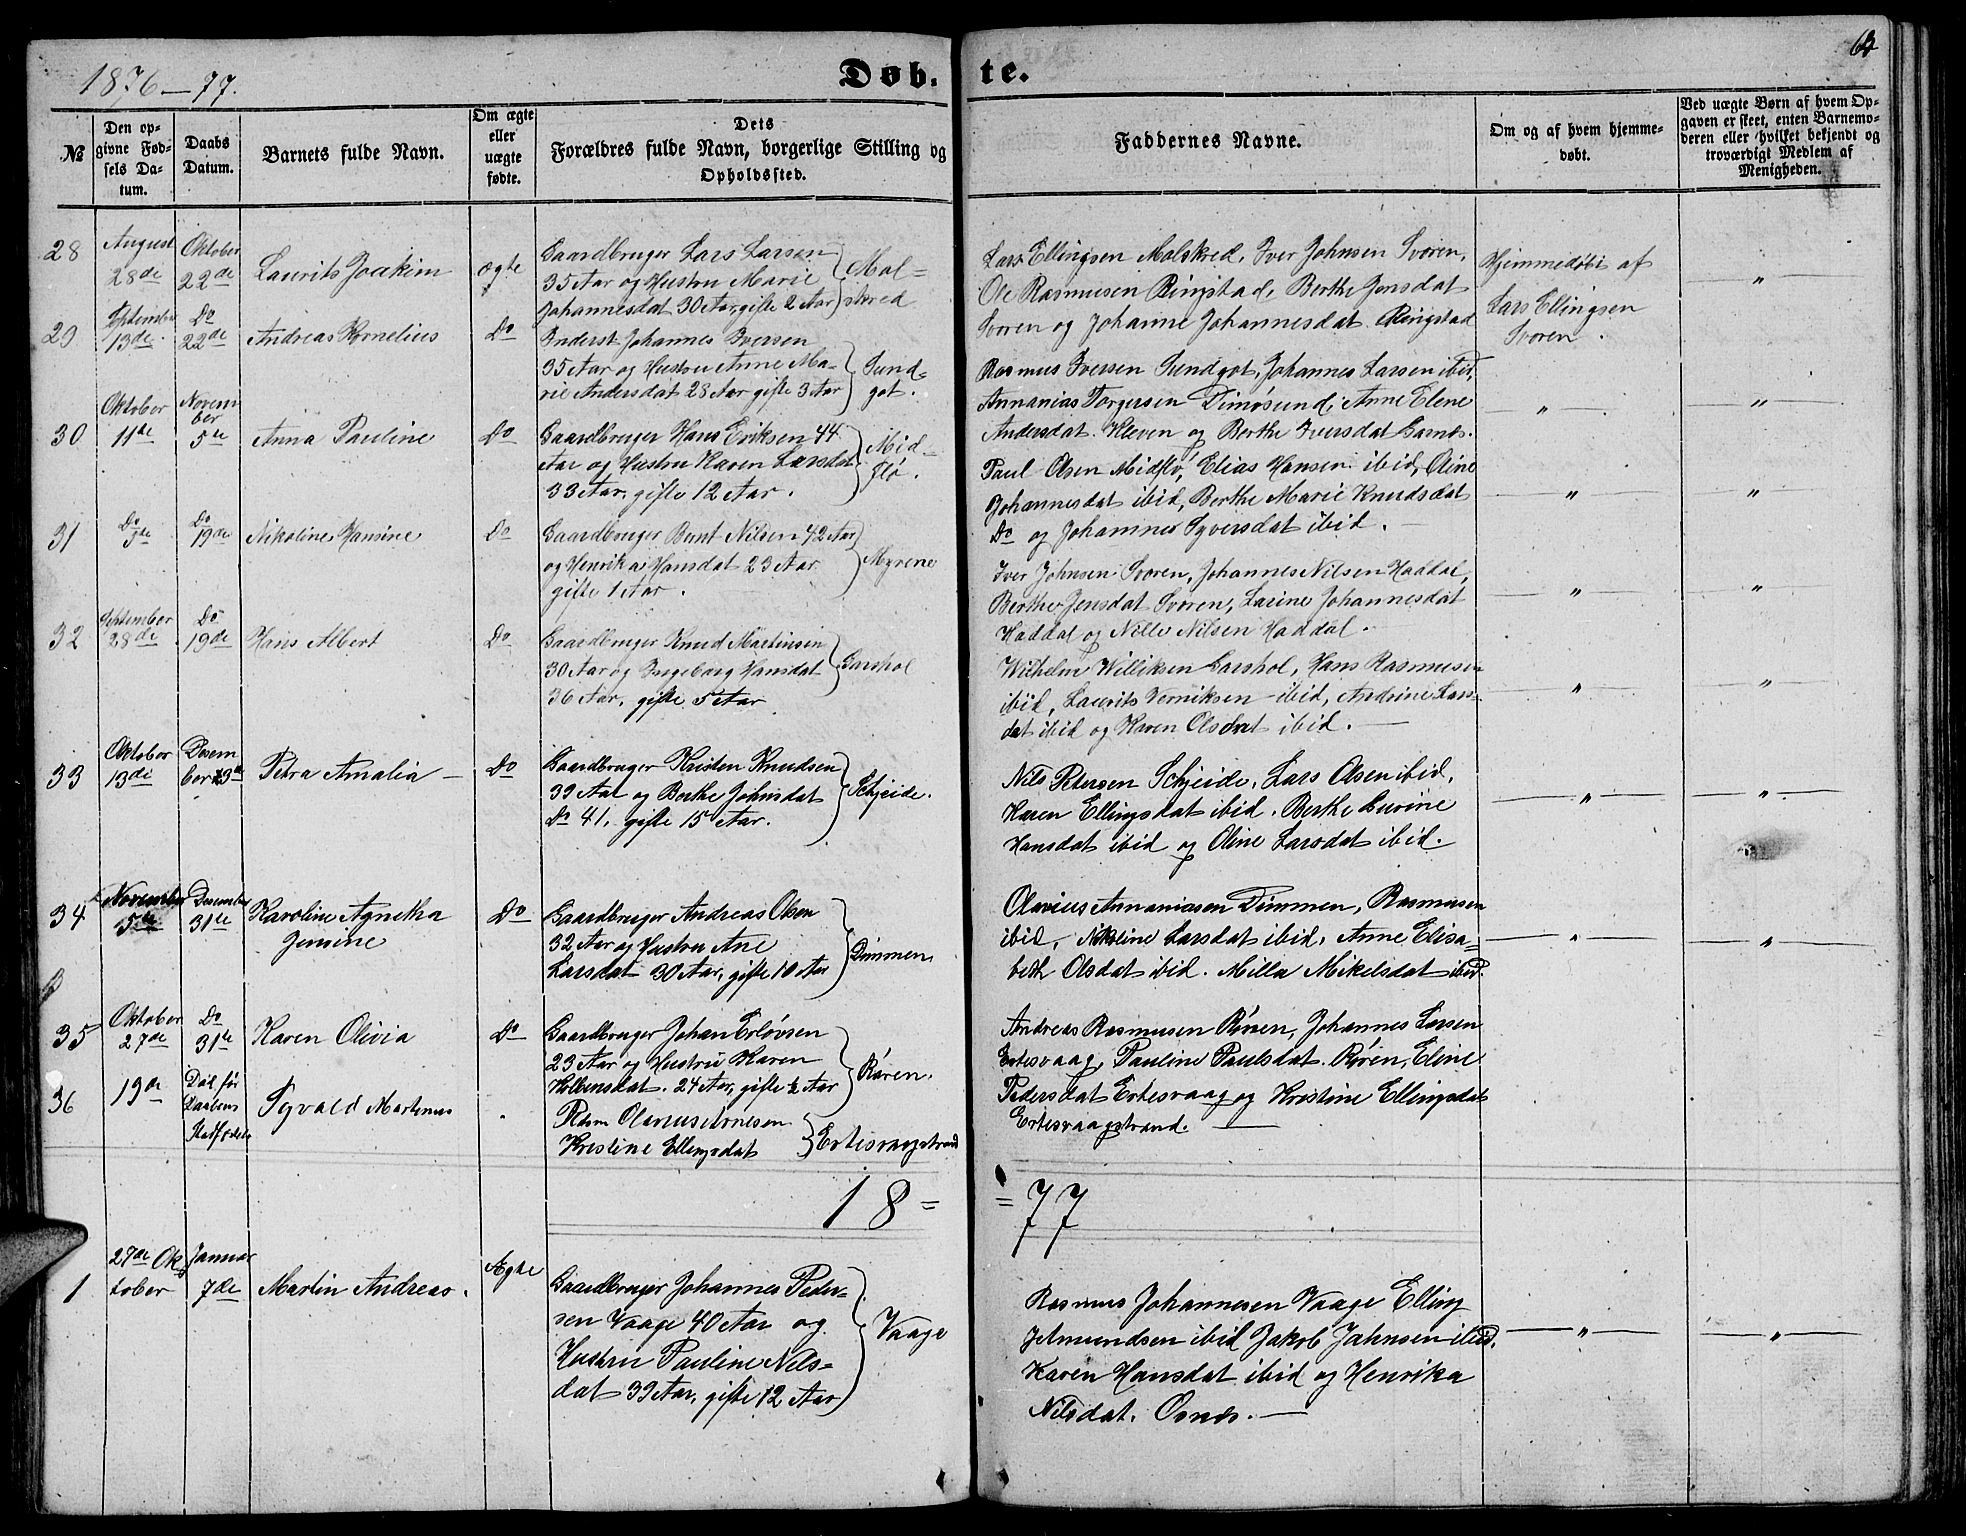 1876-77.
Døb-te.
№
Den opgivne Fødsels Datum.
Daabs Datum.
Barnets fulde Navn.
Om ægte eller uægte fødte.
Dets Forældres fulde Navn, borgerlige Stilling og Opholdssted.
Faddernes Navne.
Om og af hvem hjemmedøbt.
Ved uægte Børn af hvem Opgaven er skeet, enten Barnemoderen eller hvilket bekjendt og troværdigt Medlem af Menigheden.
28
August
28de
Oktober
22de
Laurits Joakim
ægte
Gaardbruger Lars Larsen
35 Aar og Hustru Marie
Johannesdat 30 Aar, gifte 2 Aar
Molskred
Lars Ellingsen Molskred, Iver Johnsen Svoren,
Ole Rasmusen Ringstad, Berthe Jensdat
Svoren og Johanne Johannesdat Ringstad
Hjemmedøbt af
Lars Ellingsen
Svoren.
29
September
13de
Do
22de
Andreas Kornelius
Do
Inderst Johannes Iversen
35 Aar og Hustru Anne Ma-
rie Andersdat 28 Aar gifte 3 Aar
Sund-
got.
Rasmus Iversen Sundgot, Johannes Larsen ibid,
Annanias Torgersen Dimøsund, Anne Elene
Andersdat. Kleven og Berthe Iversdat Garnes.
30
Oktober
11te
November
5te
Anna Pauline
Do
Gaardbruger Hans Eriksen 44
Aar og Hustru Karen Larsdat
33 Aar, gifte 12 Aar.
Mid-
flø.
Paul Olsen Midflø, Elias Hansen ibid, Oline
Johannesdat ibid, Berthe Marie Knudsdat
Do og Johannes Syversdat ibid.
31
Do
3de
Do
19de
Nikoline Hansine
Do
Gaardbruger Bent Nilsen 42 Aar
og Henrika Hansdat 23 Aar
gifte 1 Aar.
Myrene
Iver Johnsen Svoren, Johannes Nilsen Haddal,
Berthe Jensdat Svoren, Larine Johannesdat
Haddal og Nille Nilsen Haddal.
32
September
28de
Do
19de
Hans Albert
Do
Gaardbruger Knud Martinsen
30 Aar og Ingeborg Hansdat
36 Aar, gifte 5 Aar
Garshol
Wilhelm Williksen Garshol, Hans Rasmusen
ibid, Laurits Jerniksen ibid, Andrine Lars-
dat ibid og Karen Olsdat ibid.
33
Oktober
13de
Desem
ber 3de
Petra Amalia
Do
Gaardbruger Kristen Knudsen
39 Aar og Berthe Johnsdat
Do 41, gifte 15 Aar.
Schjeide.
Nils Petersen Schjeide, Lars Olsen ibid,
Karen Ellingsdat ibid, Berthe Gurine
Hansdat ibid og Oline Larsdat ibid.
34
November
5te
Desember
31te
Karoline Agnetha
Jensine
Do
Gaardbruger Andreas Olsen
32 Aar og Hustru Ane
Larsdat 30 Aar, gifte 10 Aar
Dimmen
Olavius Annaniasen Dimmen, Rasmusen
ibid, Nikoline Larsdat ibid, Anne Elisa-
beth Olsdat ibid. Milla Mikelsdat ibid.
35
Oktober
27de
Do
31te
Karen Olivia
Do
Gaardbruger Johan Erløvsen
23 Aar og Hustru Karen
24 Aar, gifte ½ Aar
Røren.
Andreas Rasmusen Røren, Johannes Larsen
Ertesvaag, Pauline Paulsdat Røren, Eline
Pedersdat Ertesvaag og Kristine Ellingsdat
Ertesvaagstrand.
36
19de
Død før
Daaben
Sevald Martinus
Rasm Olavius Arnesen
Kristine Ellingsdat
Ertesvaagstrand
18=
=77
1
27de Ok
tober
Januar
7de
Martin Andreas.
Ægte
Gaardbruger Johannes Peder-
sen Vaage 40 Aar og
Hustru Pauline Nils-
dat 39 Aar, gifte 12 Aar
Vaage
Rasmus Johannesen Vaage Elling
Amundsen ibid Jakob Jahnsen ibid.
Karen Hansdat ibid og Henrika
Nilsdat. Osnes.